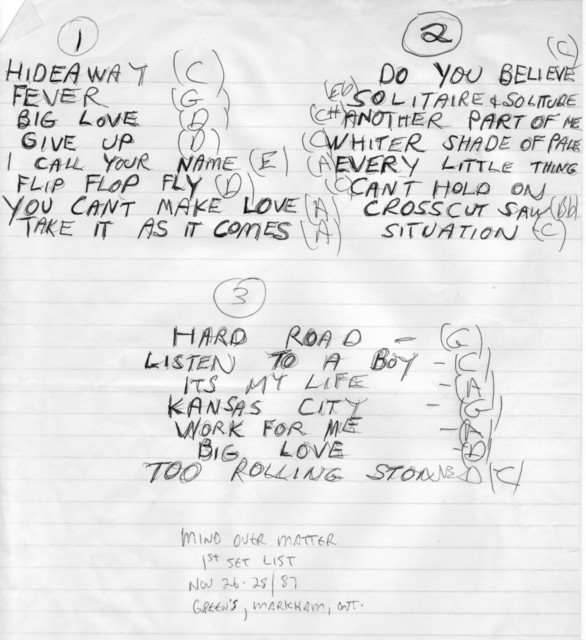 1
HIDEAWAY (C)
FEVER (G)
BIG LOVE (D)
GIVE UP (D)
I CALL YOUR NAME (E)
FLIP FLOP FLY (D)
YOU CANT MAKE LOVE (A)
TAKE IT AS IT COMES (A)
2
(C) DO YOU BELIEVE
(Eb) SOLITAIRE & SOLITUDE
(C#) ANOTHER PART OF ME
(C) WHITER SHADE OF PALE
(A) EVERY LITTLE THING
(C) CANT HOLD ON
CROSSCUT SAW (Bb)
SITUATION (C)
3
HARD ROAD - (G)
LISTEN TO A BOY - (C)
ITS MY LIFE - (A)
KANSAS CITY - (G)
WORK FOR ME - (A)
BIG LOVE - (D)
TOO ROLLING STONNS D/C
MIND OVER MATTER
1ST SET LIST
NOV 26-28/87
GREEN'S, MARKHAM, ONT.